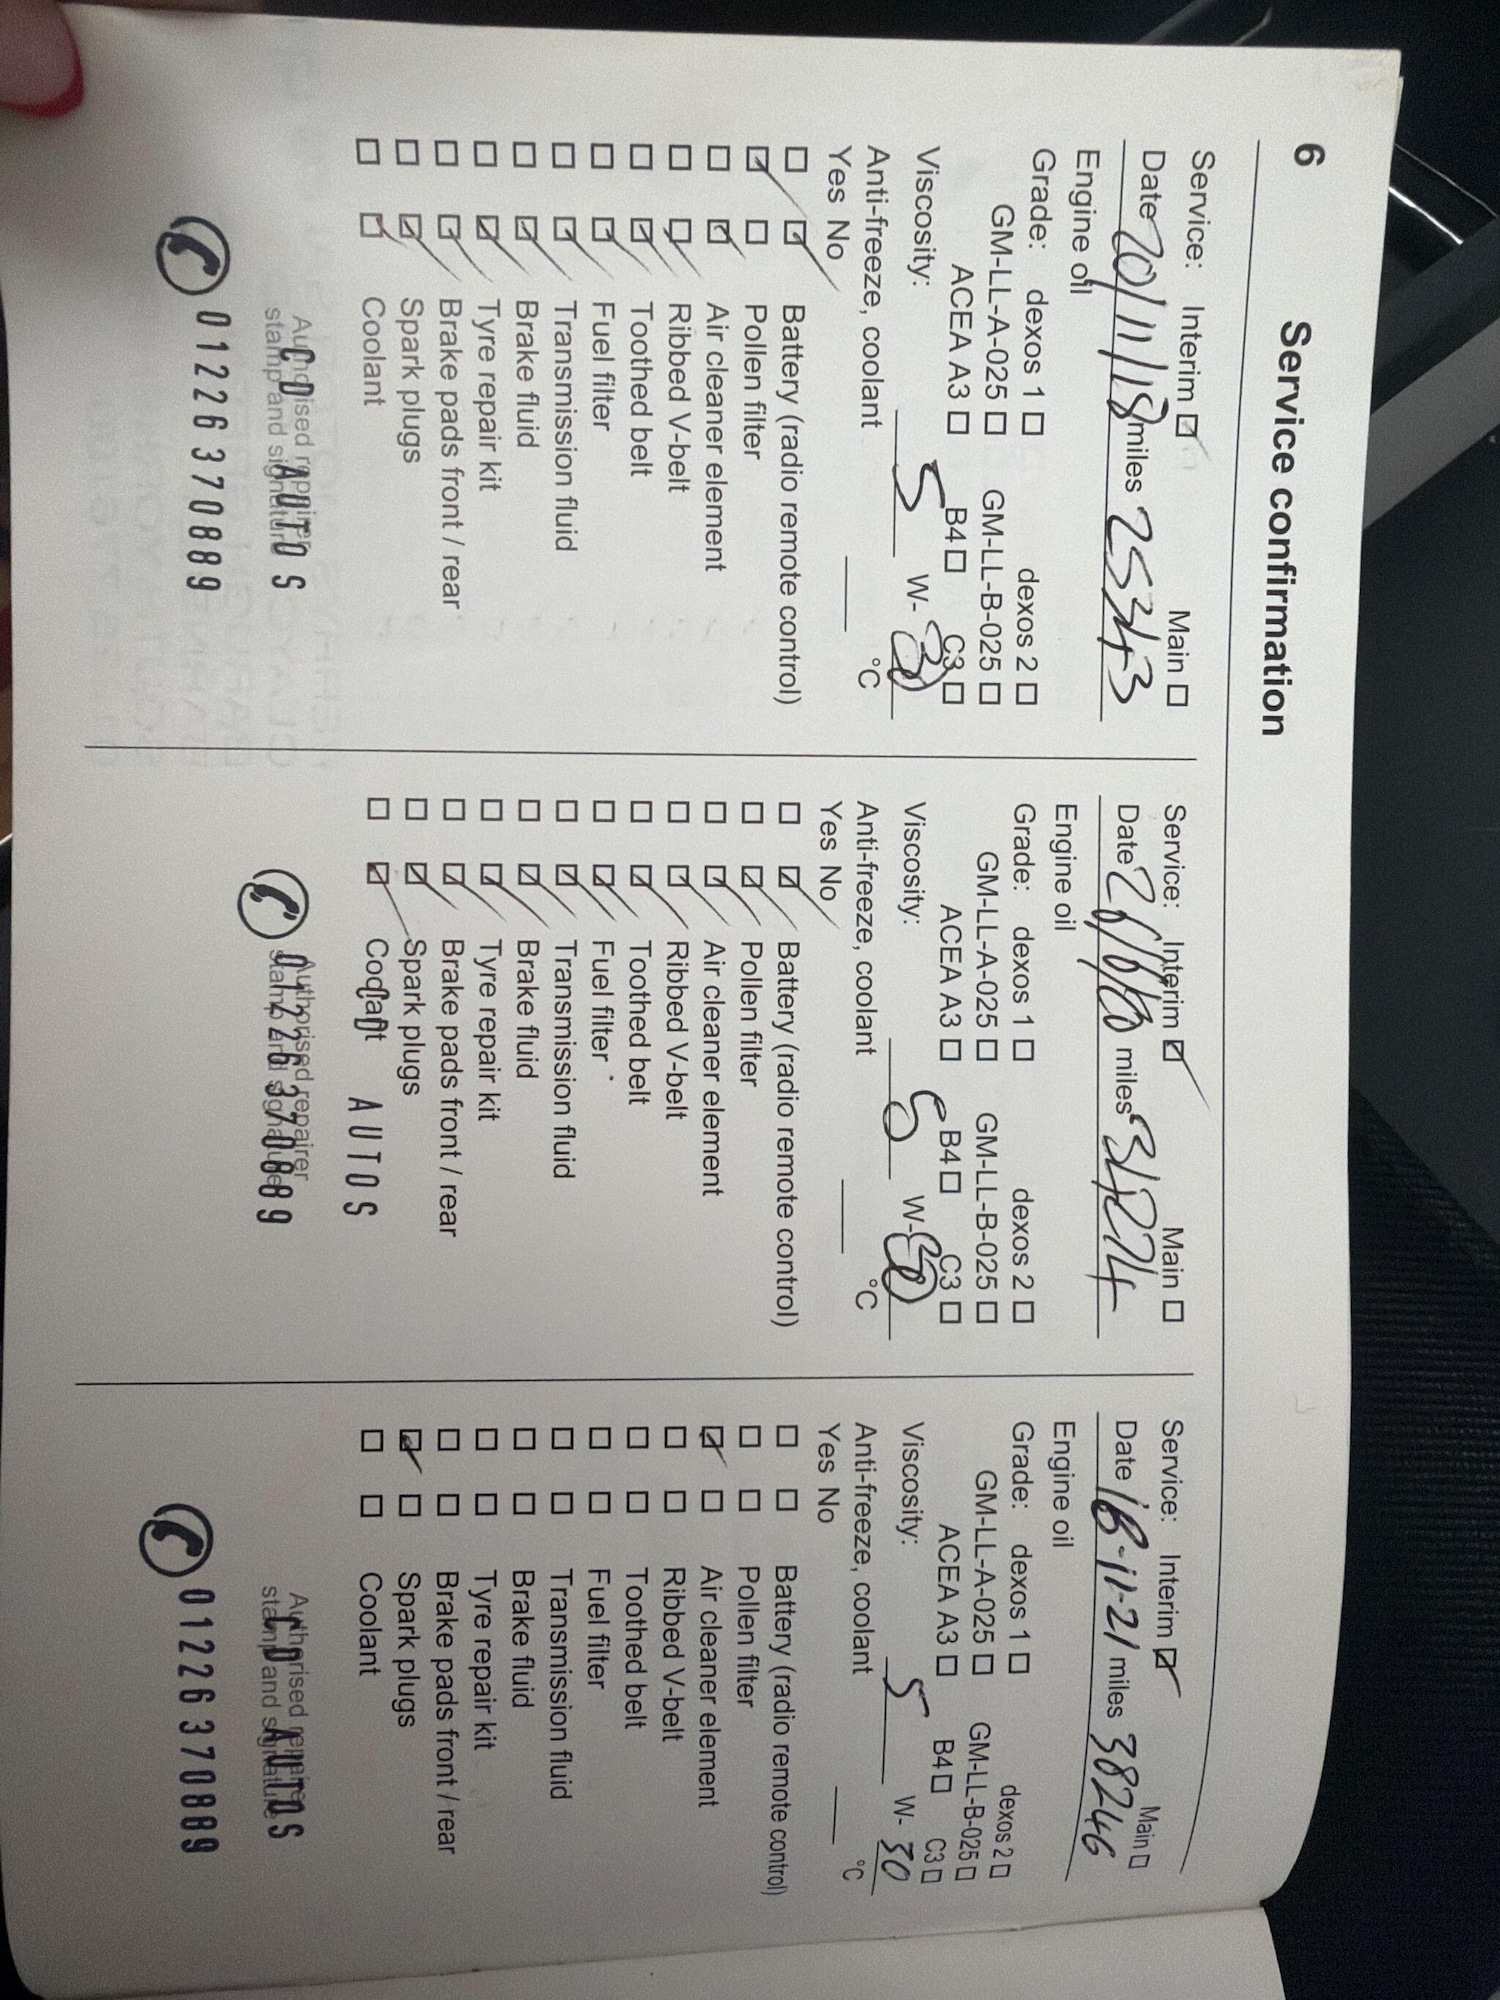 6 Service confirmation
Service: Interim ☑ Main ☐
Date 20/11/18 miles 25343
Engine oil
Grade: dexos 1 ☐ dexos 2 ☐
GM-LL-A-025 ☐ GM-LL-B-025 ☐
ACEA A3 ☐ B4 ☐ C3 ☐
Viscosity: 5 W- 30
Anti-freeze, coolant °C
Yes No
☐ ☑ Battery (radio remote control)
☑ ☐ Pollen filter
☐ ☑ Air cleaner element
☐ ☑ Ribbed V-belt
☐ ☑ Toothed belt
☐ ☑ Fuel filter
☐ ☑ Transmission fluid
☐ ☑ Brake fluid
☐ ☑ Tyre repair kit
☐ ☑ Brake pads front / rear
☐ ☑ Spark plugs
☐ ☑ Coolant
Authorised repairer
CD AUTOS
stamp and signature
01226370889
Service: Interim ☑ Main ☐
Date miles 34274
Engine oil
Grade: dexos 1 ☐ dexos 2 ☐
GM-LL-A-025 ☐ GM-LL-B-025 ☐
ACEA A3 ☐ B4 ☐ C3 ☐
Viscosity: 5 W- 30
Anti-freeze, coolant °C
Yes No
☐ ☑ Battery (radio remote control)
☐ ☑ Pollen filter
☐ ☑ Air cleaner element
☐ ☑ Ribbed V-belt
☐ ☑ Toothed belt
☐ ☑ Fuel filter
☐ ☑ Transmission fluid
☐ ☑ Brake fluid
☐ ☑ Tyre repair kit
☐ ☑ Brake pads front / rear
☐ ☑ Spark plugs
☐ ☑ Coolant
CD AUTOS
Authorised repairer
stamp and signature
01226370889
Service: Interim ☑ Main ☐
Date 18-11-21 miles 38246
Engine oil
Grade: dexos 1 ☐ dexos 2 ☐
GM-LL-A-025 ☐ GM-LL-B-025 ☐
ACEA A3 ☐ B4 ☐ C3 ☐
Viscosity: 5 W- 30
Anti-freeze, coolant °C
Yes No
☐ ☐ Battery (radio remote control)
☐ ☐ Pollen filter
☑ ☐ Air cleaner element
☐ ☐ Ribbed V-belt
☐ ☐ Toothed belt
☐ ☐ Fuel filter
☐ ☐ Transmission fluid
☐ ☐ Brake fluid
☐ ☐ Tyre repair kit
☐ ☐ Brake pads front / rear
☑ ☐ Spark plugs
☐ ☐ Coolant
Authorised repairer
CD AUTOS
stamp and signature
01226370889